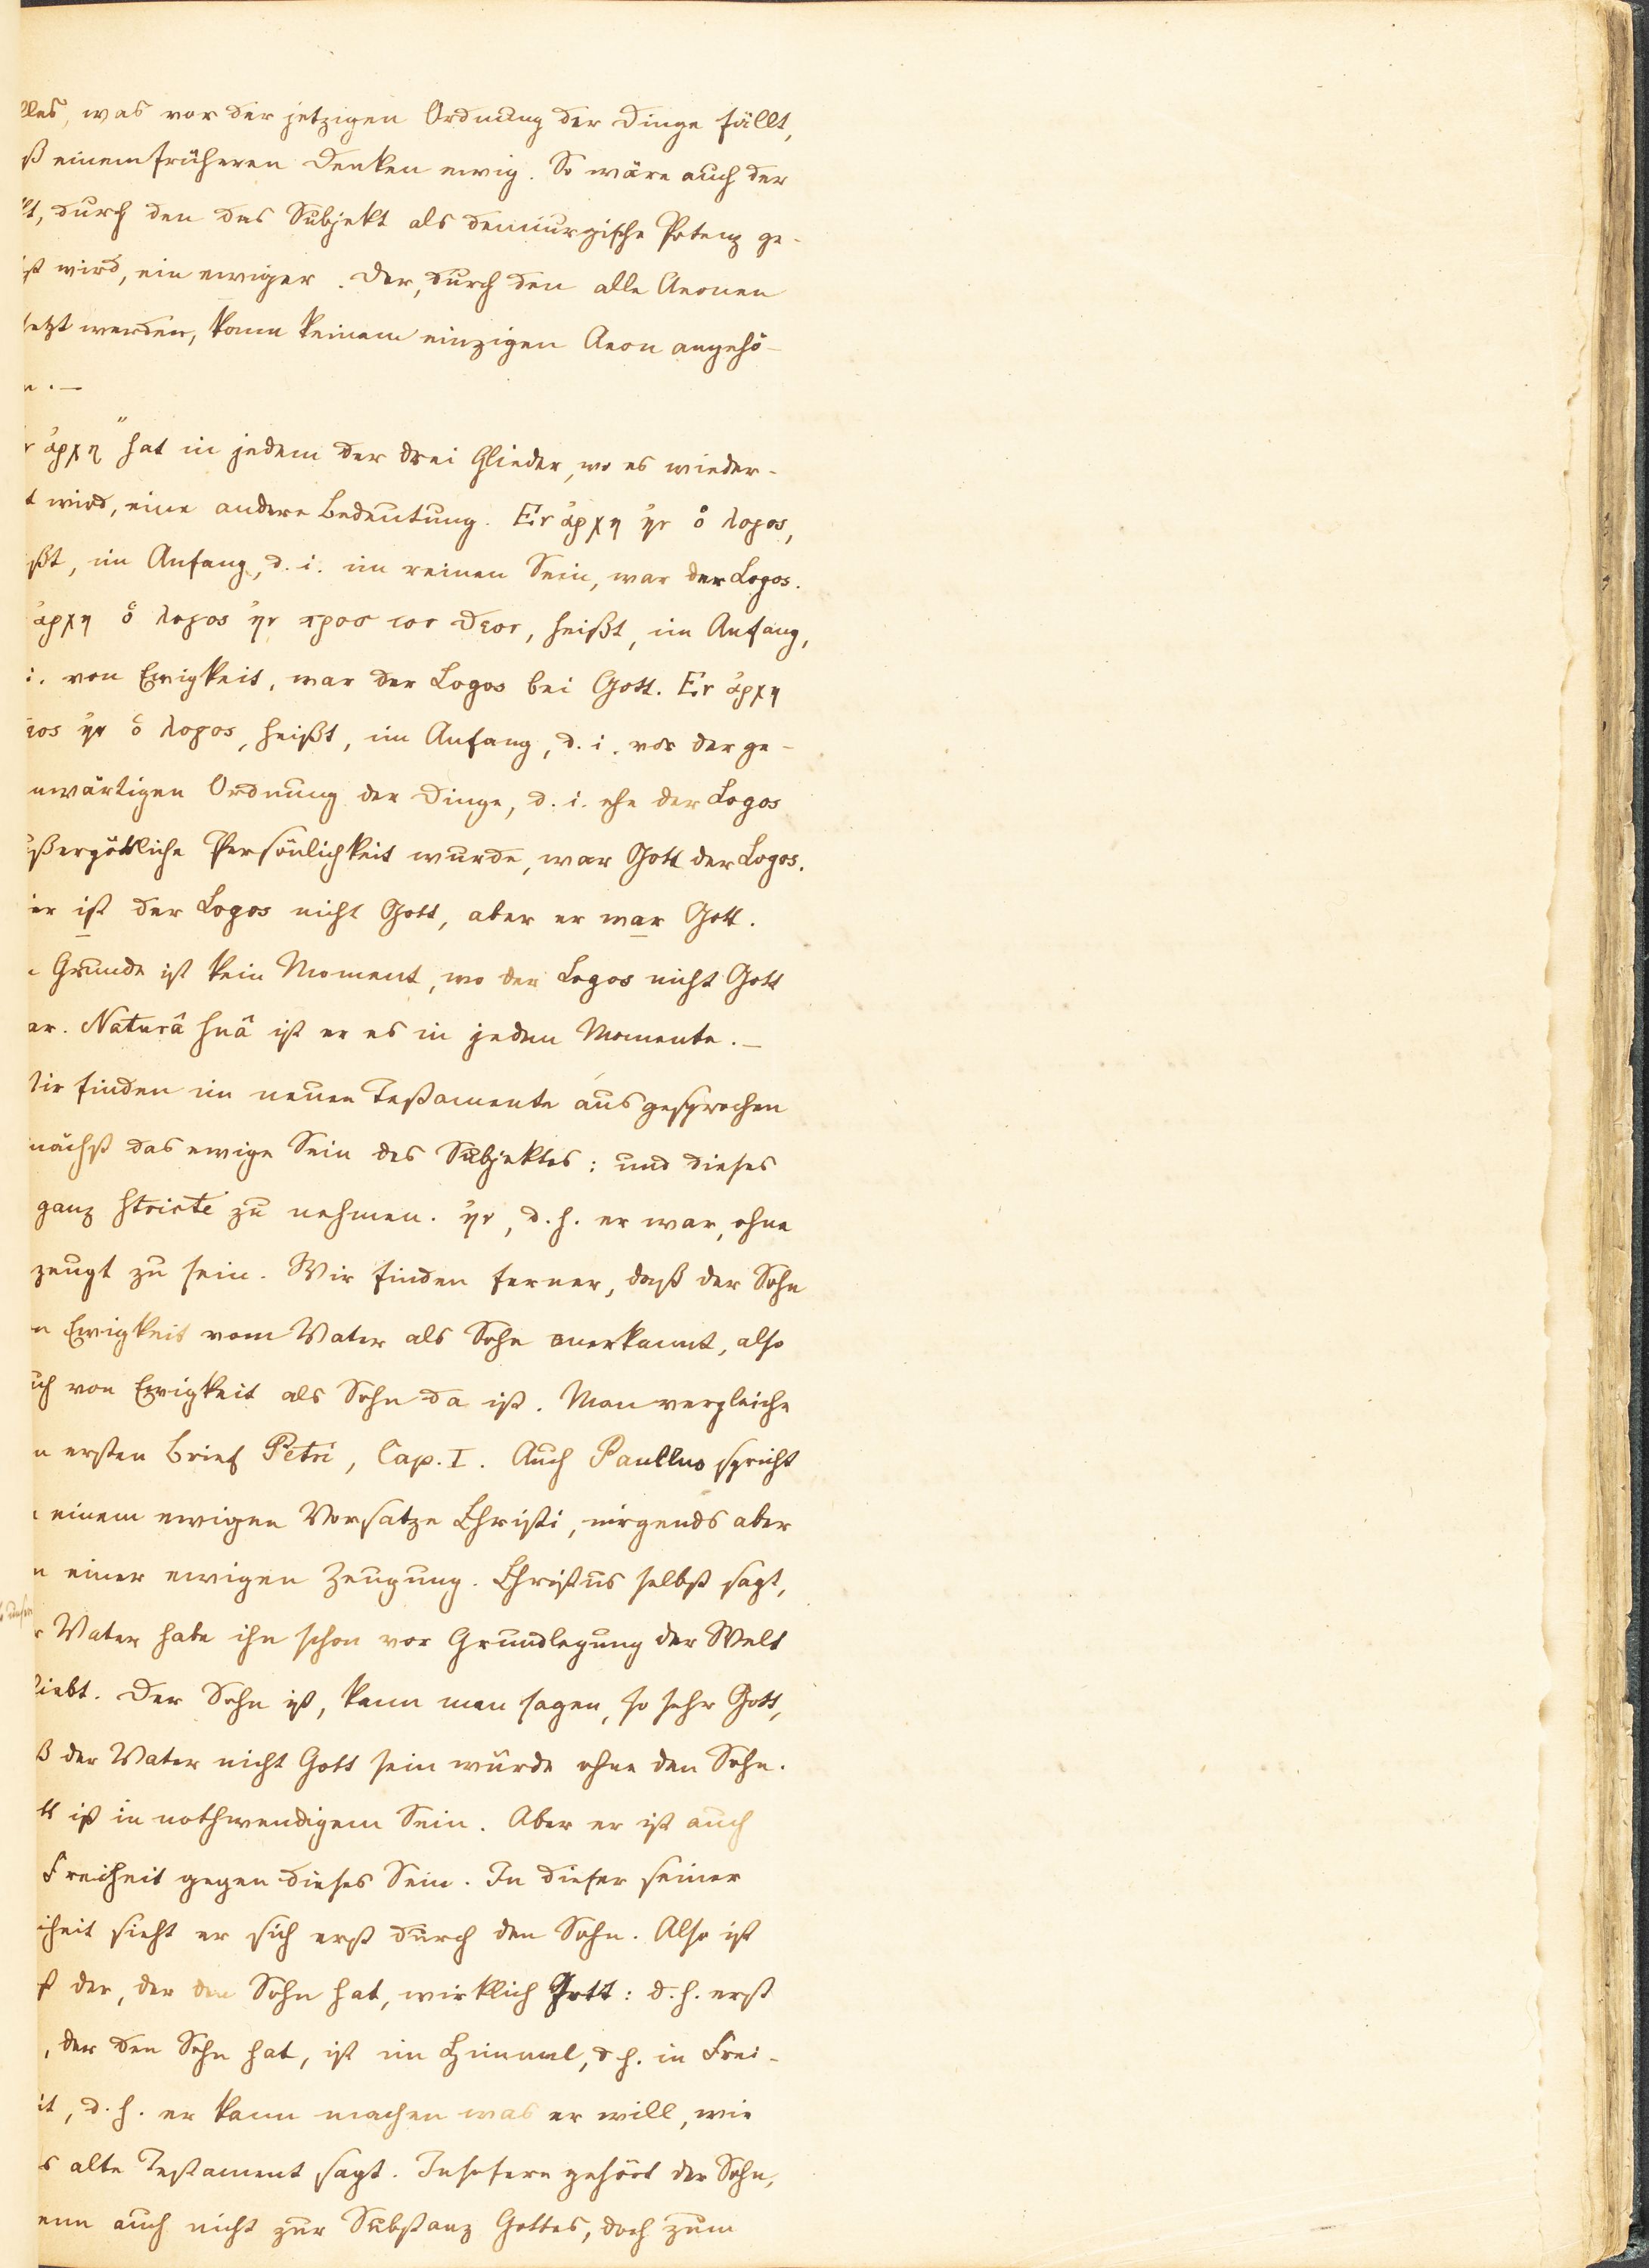 lles, was vor der jetzigen Ordnung der Dinge fällt,
ß einem früheren Denken ewig. So wäre auch der
kt, durch den das Subjekt als demiurgische Potenz ge-
ßt wird, ein ewiger. Der, durch den alle Aeonen
setzt werden, kann keinem einzigen Aeon angehö-
n. —
ν ἀρχη" hat in jedem der drei Glieder, wo es wieder-
t wird, eine andere Bedeutung. Εν ἀρχη ἠν ὁ λογος,
ßt, im Anfang, d. i. im reinen Sein, war der Logos.
ἀρχη ὁ λογος ἠν προσ τον θεον, heißt, im Anfang,
i. von Ewigkeit, war der Logos bei Gott. Εν ἀρχη
εος ἠν ὁ λογος, heißt, im Anfang, d. i. vor der ge-
nwärtigen Ordnung der Dinge, d. i. ehe der Logos
ußergöttliche Persönlichkeit wurde, war Gott der Logos.
ier ist der Logos nicht Gott, aber er war Gott.
Grunde ist kein Moment, wo der Logos nicht Gott
ar. Naturâ suâ ist er es in jedem Momente. —
Wir finden im neuen Testamente ausgesprochen
nächst das ewige Sein des Subjektes: und dieses
ganz stricte zu nehmen. ἠν, d. h. er war, ohne
zeugt zu sein. Wir finden ferner, daß der Sohn
n Ewigkeit vom Vater als Sohn anerkannt, also
uch von Ewigkeit als Sohn da ist. Man vergleiche
n ersten Brief Petri, Cap. I. Auch Paullus spricht
einem ewigen Vorsatze Christi, nirgends aber
n einer ewigen Zeugung. Christus selbst sagt,
r Vater habe ihn schon vor Grundlegung der Welt
liebt. Der Sohn ist, kann man sagen, so sehr Gott,
ß der Vater nicht Gott sein würde ohne den Sohn.
tt ist in nothwendigem Sein. Aber er ist auch
Freiheit gegen dieses Sein. In dieser seiner
iheit sieht er sich erst durch den Sohn. Also ist
st der, der den Sohn hat, wirklich Gott: d. h. erst
, der den Sohn hat, ist im Himmel, d. h. in Frei-
it, d. h. er kann machen was er will, wie
s alte Testament sagt. Insofern gehört der Sohn,
enn auch nicht zur Substanz Gottes, doch zum